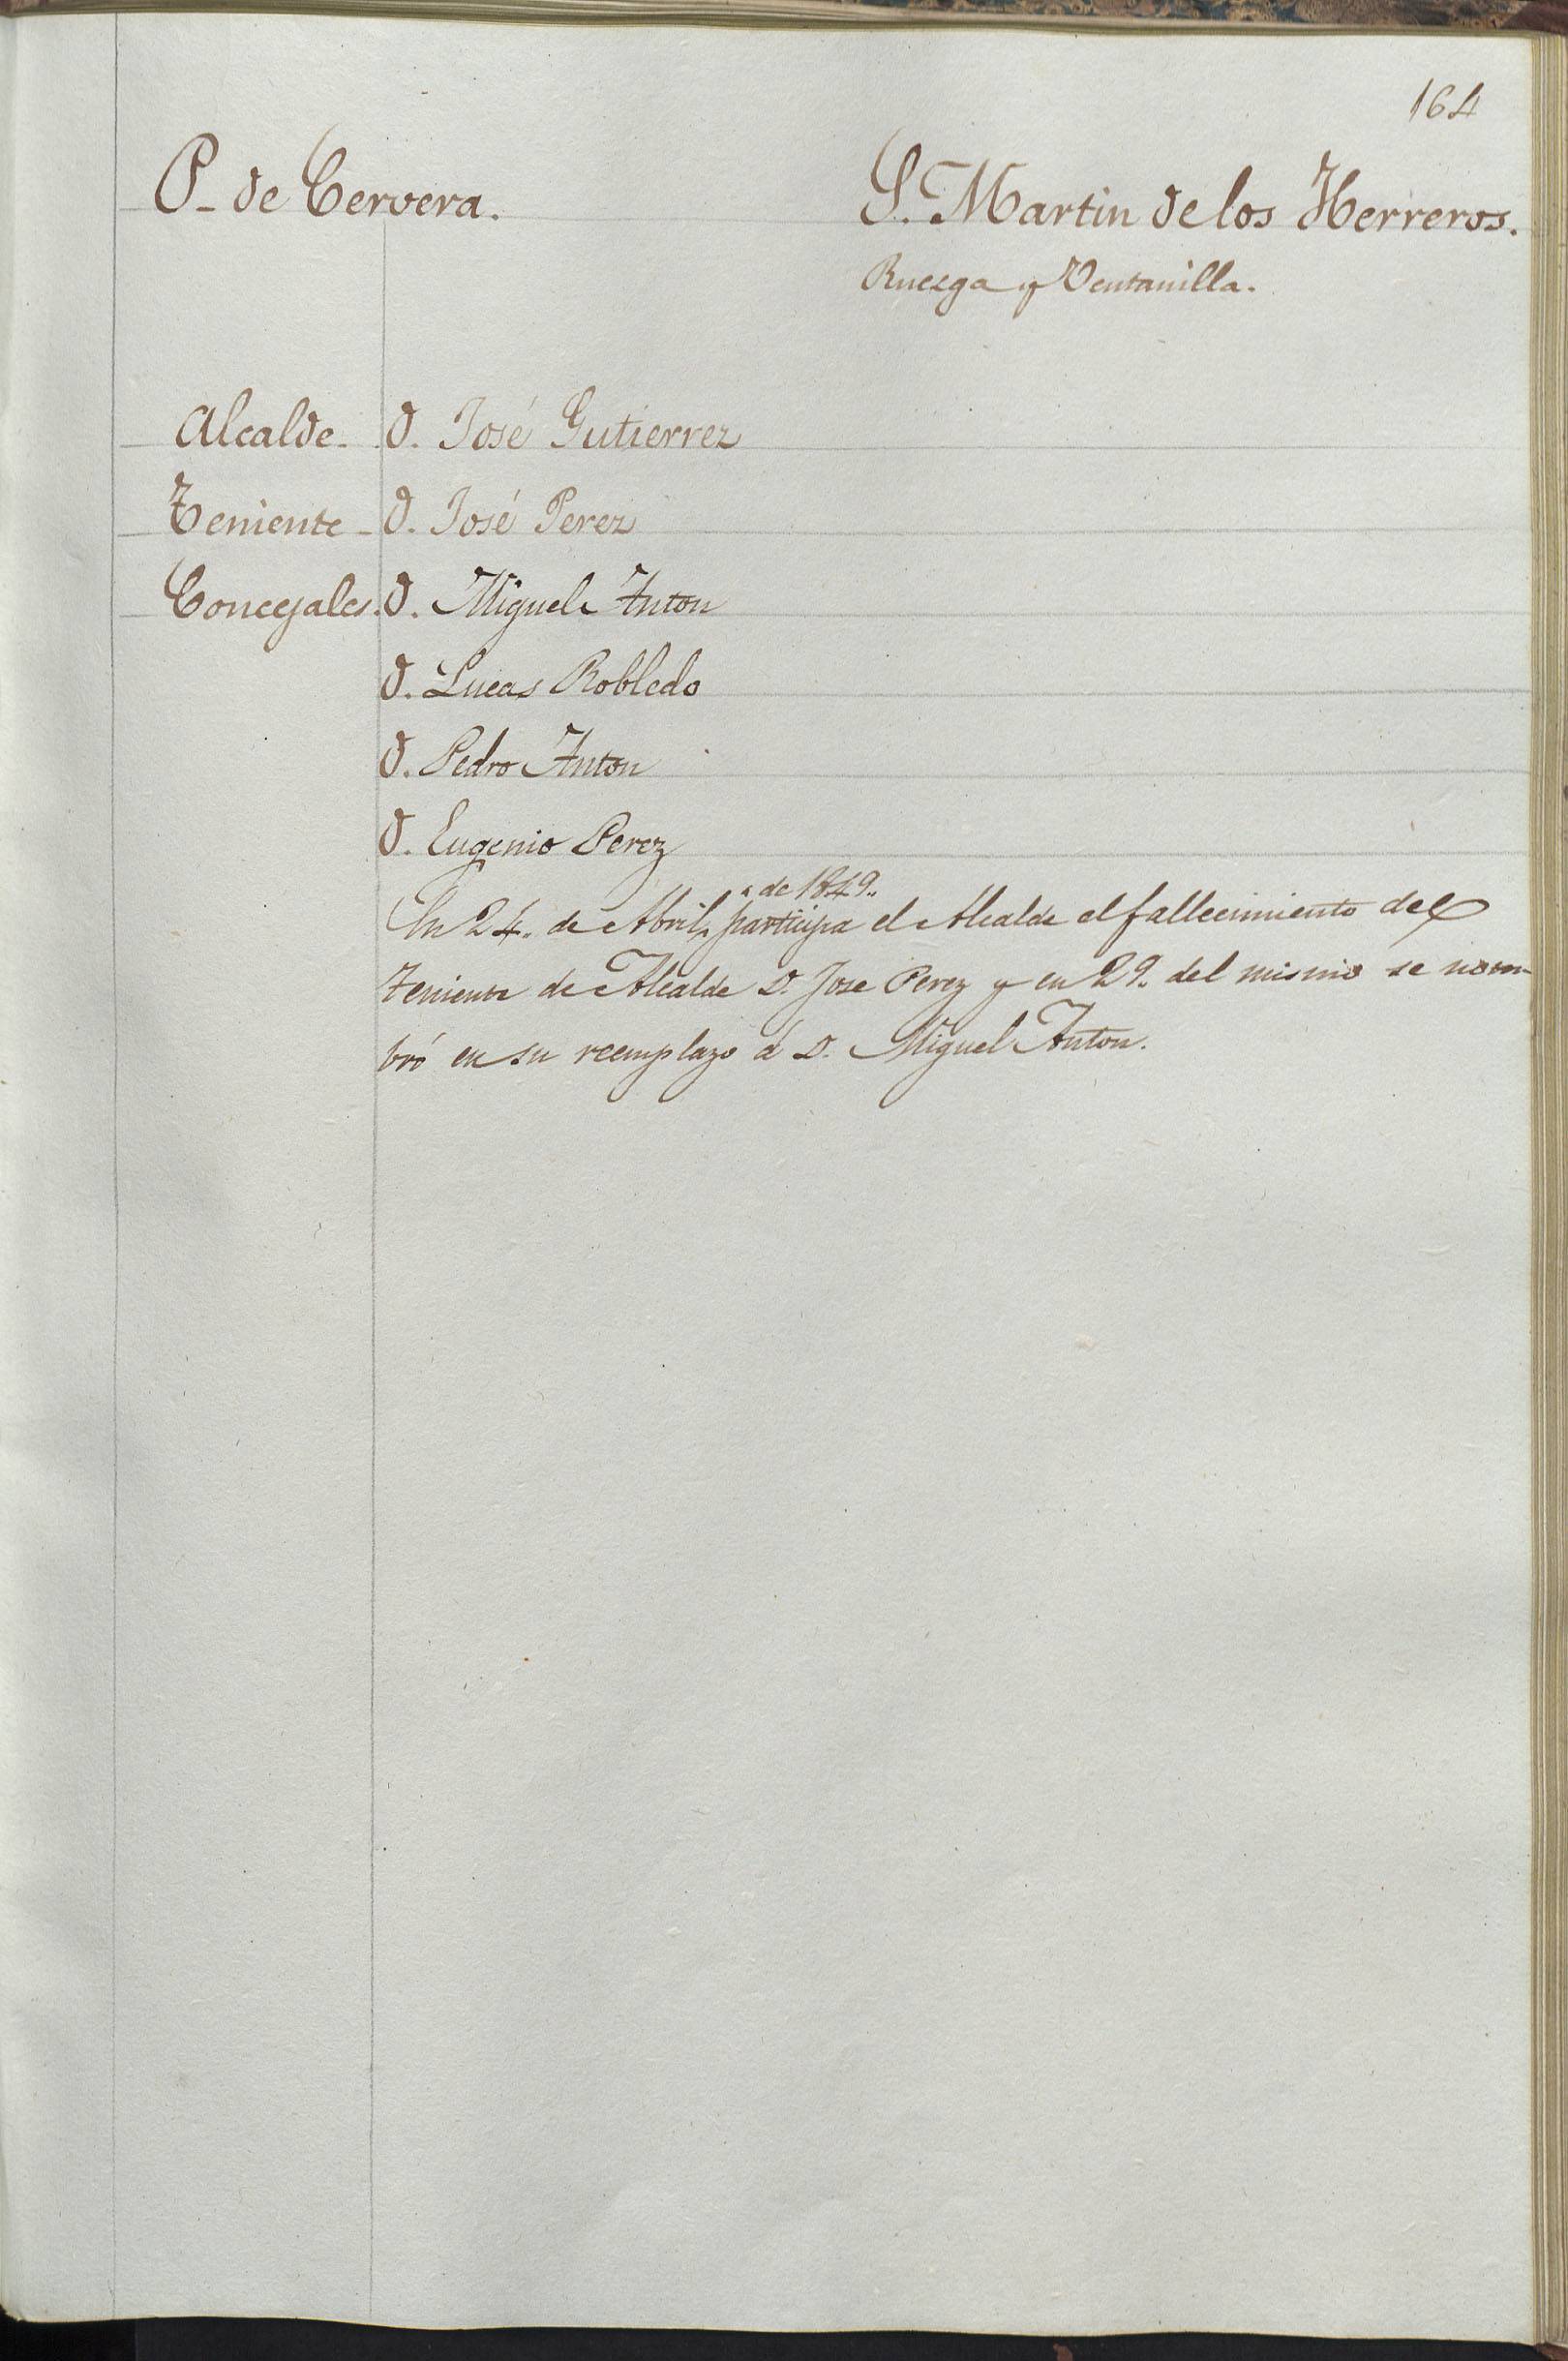 164
P. de Cervera.
S. Martin de los Herreros.
Ruesga y Ventanilla.
Alcalde. D. José Gutierrez
Teniente - D. José Perez
Concejales. D. Miguel Anton
D. Lucas Robledo
D. Pedro Anton
D. Eugenio Perez
" de 1849 "
En 24. de Abril, participa el Alcalde el fallecimiento del
teniente de Alcalde D. Jose Perez y en 29. del mismo se nom-
bró en su reemplazo á D. Miguel Anton.